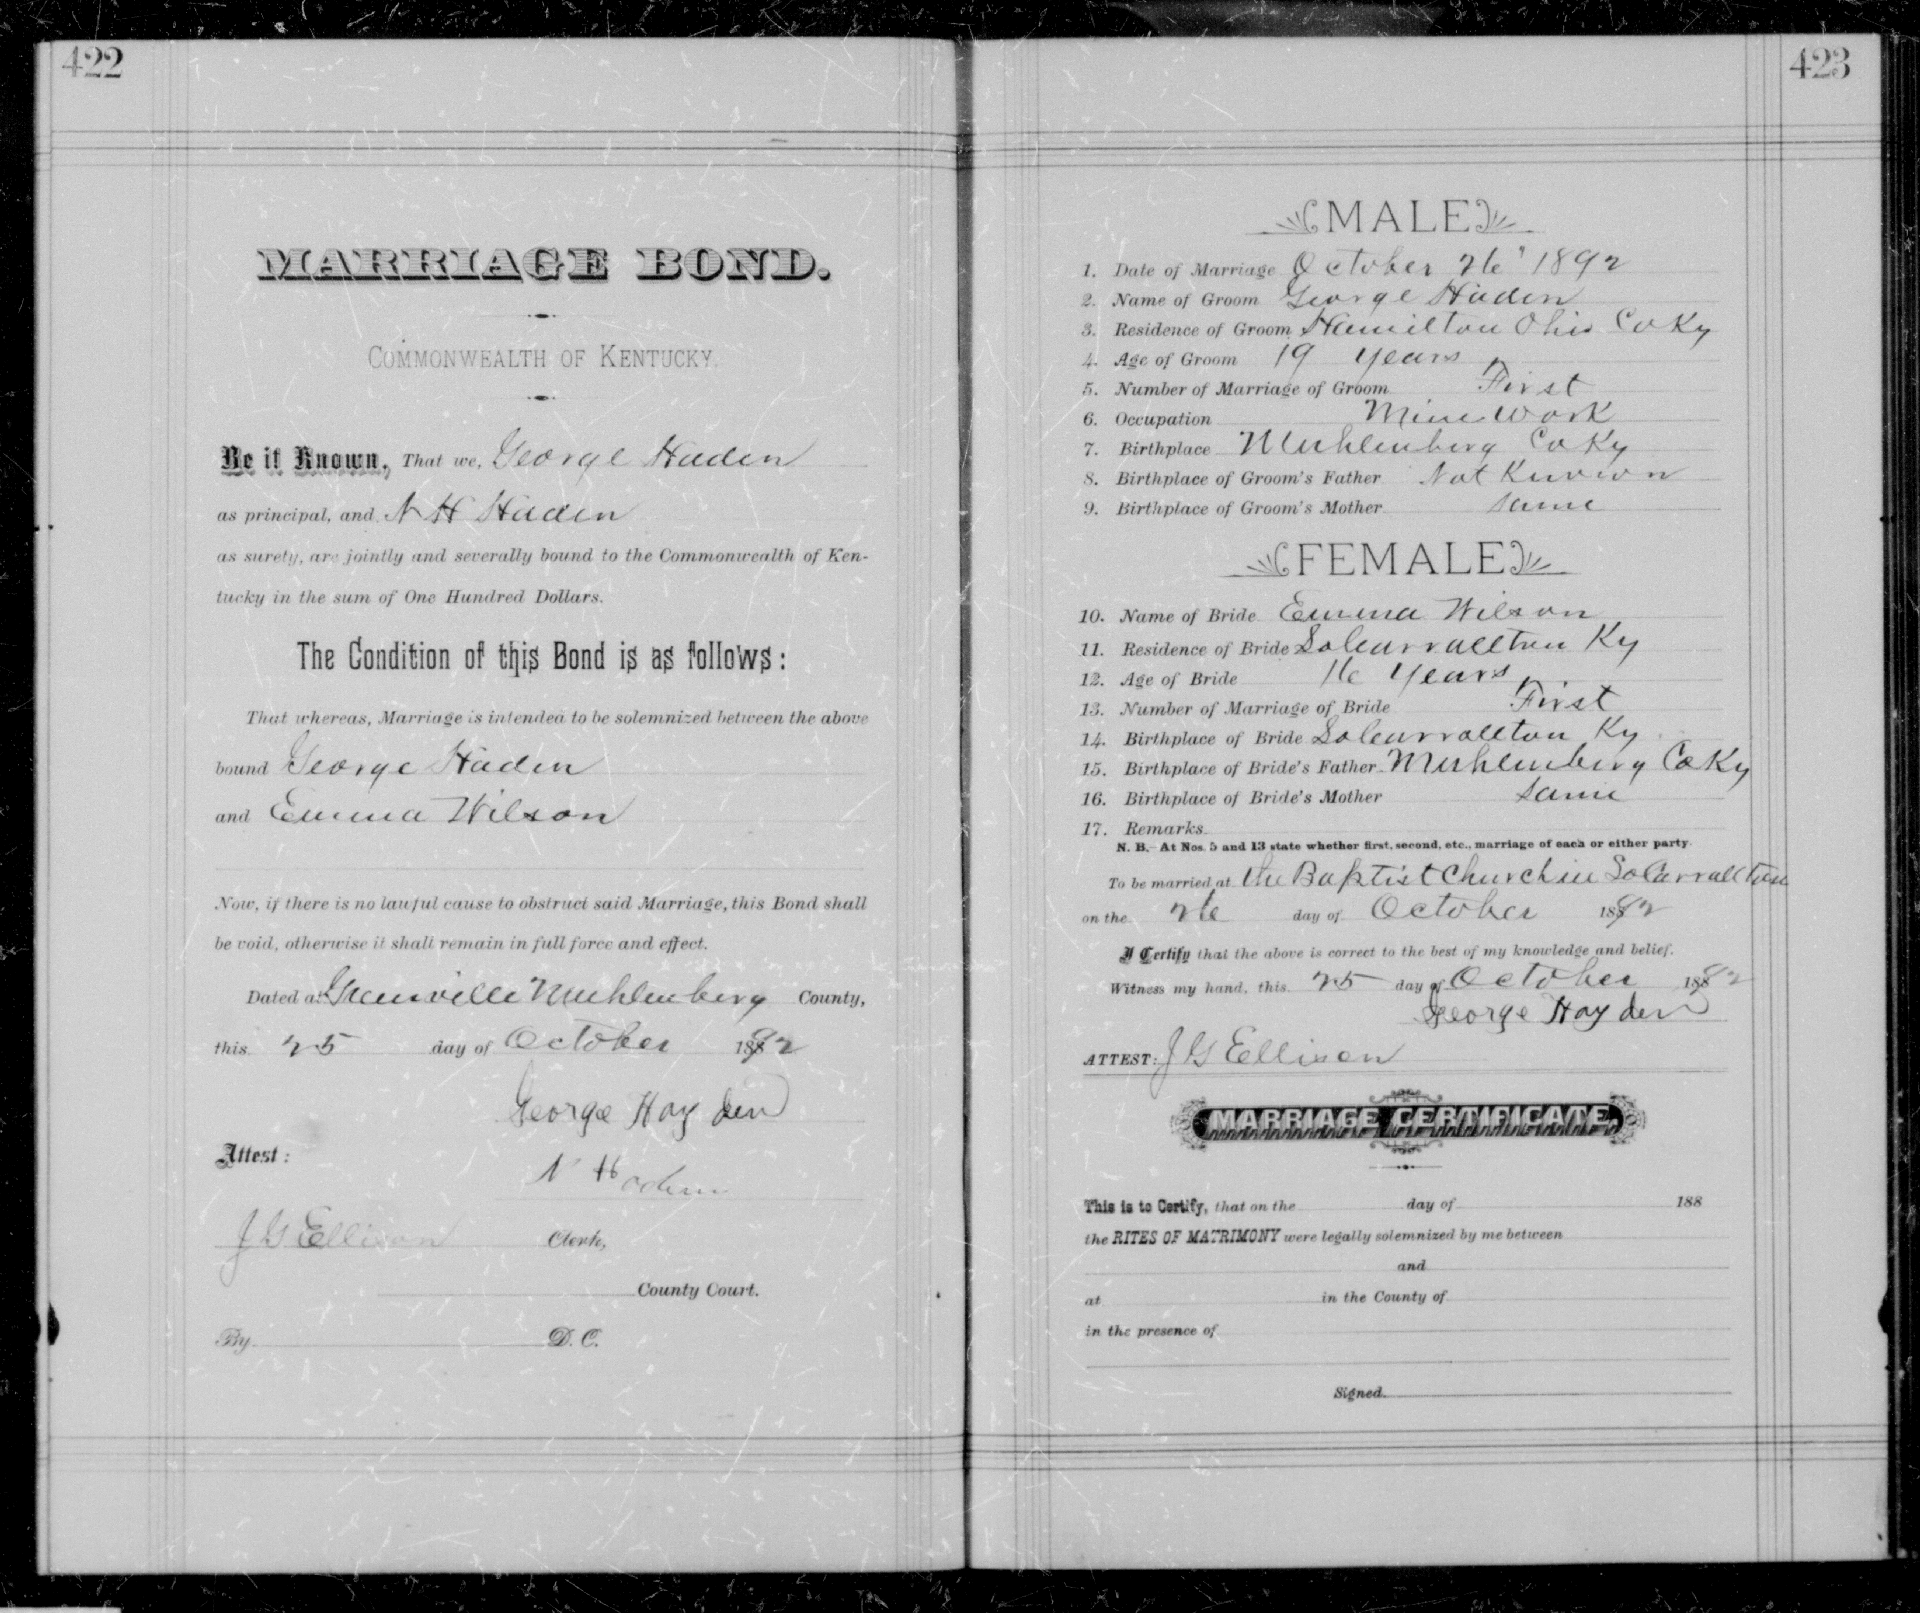 422
MARRIAGE BOND.
COMMONWEALTH OF KENTUCKY.
Be it Known, That we, George Haden
as principal, and N H Haden
as surety, are jointly and severally bound to the Commonwealth of Ken-
tucky in the sum of One Hundred Dollars.
The Condition of this Bond is as follows:
That whereas, Marriage is intended to be solemnized between the above
bound George Haden
and Emma Wilson
Now, if there is no lawful cause to obstruct said Marriage, this Bond shall
be void, otherwise it shall remain in full force and effect.
Dated at Greenville Muhlenberg County,
this 25 day of October 1892
George Hayden
Attest:
N Haden
J G Ellison Clerk,
County Court.
By D. C.
423
MALE
1. Date of Marriage October 26" 1892
2. Name of Groom George Haden
3. Residence of Groom Hamilton Ohio Co Ky
4. Age of Groom 19 years
5. Number of Marriage of Groom First
6. Occupation Mine Work
7. Birthplace Muhlenberg Co Ky
8. Birthplace of Groom's Father Not Known
9. Birthplace of Groom's Mother Same
FEMALE
10. Name of Bride Emma Wilson
11. Residence of Bride So Carrallton Ky
12. Age of Bride 16 Years
13. Number of Marriage of Bride First
14. Birthplace of Bride So Carrallton Ky
15. Birthplace of Bride's Father Muhlenberg Co Ky
16. Birthplace of Bride's Mother Same
17. Remarks
N. B.- At Nos. 5 and 13 state whether first, second, etc., marriage of each or either party.
To be married at the Baptist Church in So Carrallton
on the 26 day of October 1892
I Certify that the above is correct to the best of my knowledge and belief.
Witness my hand, this 25 day of October 1892
George Hayden
ATTEST: J G Ellison
MARRIAGE CERTIFICATE.
This is to Certify, that on the day of 188
the RITES OF MATRIMONY were legally solemnized by me between
and
at in the County of
in the presence of
Signed